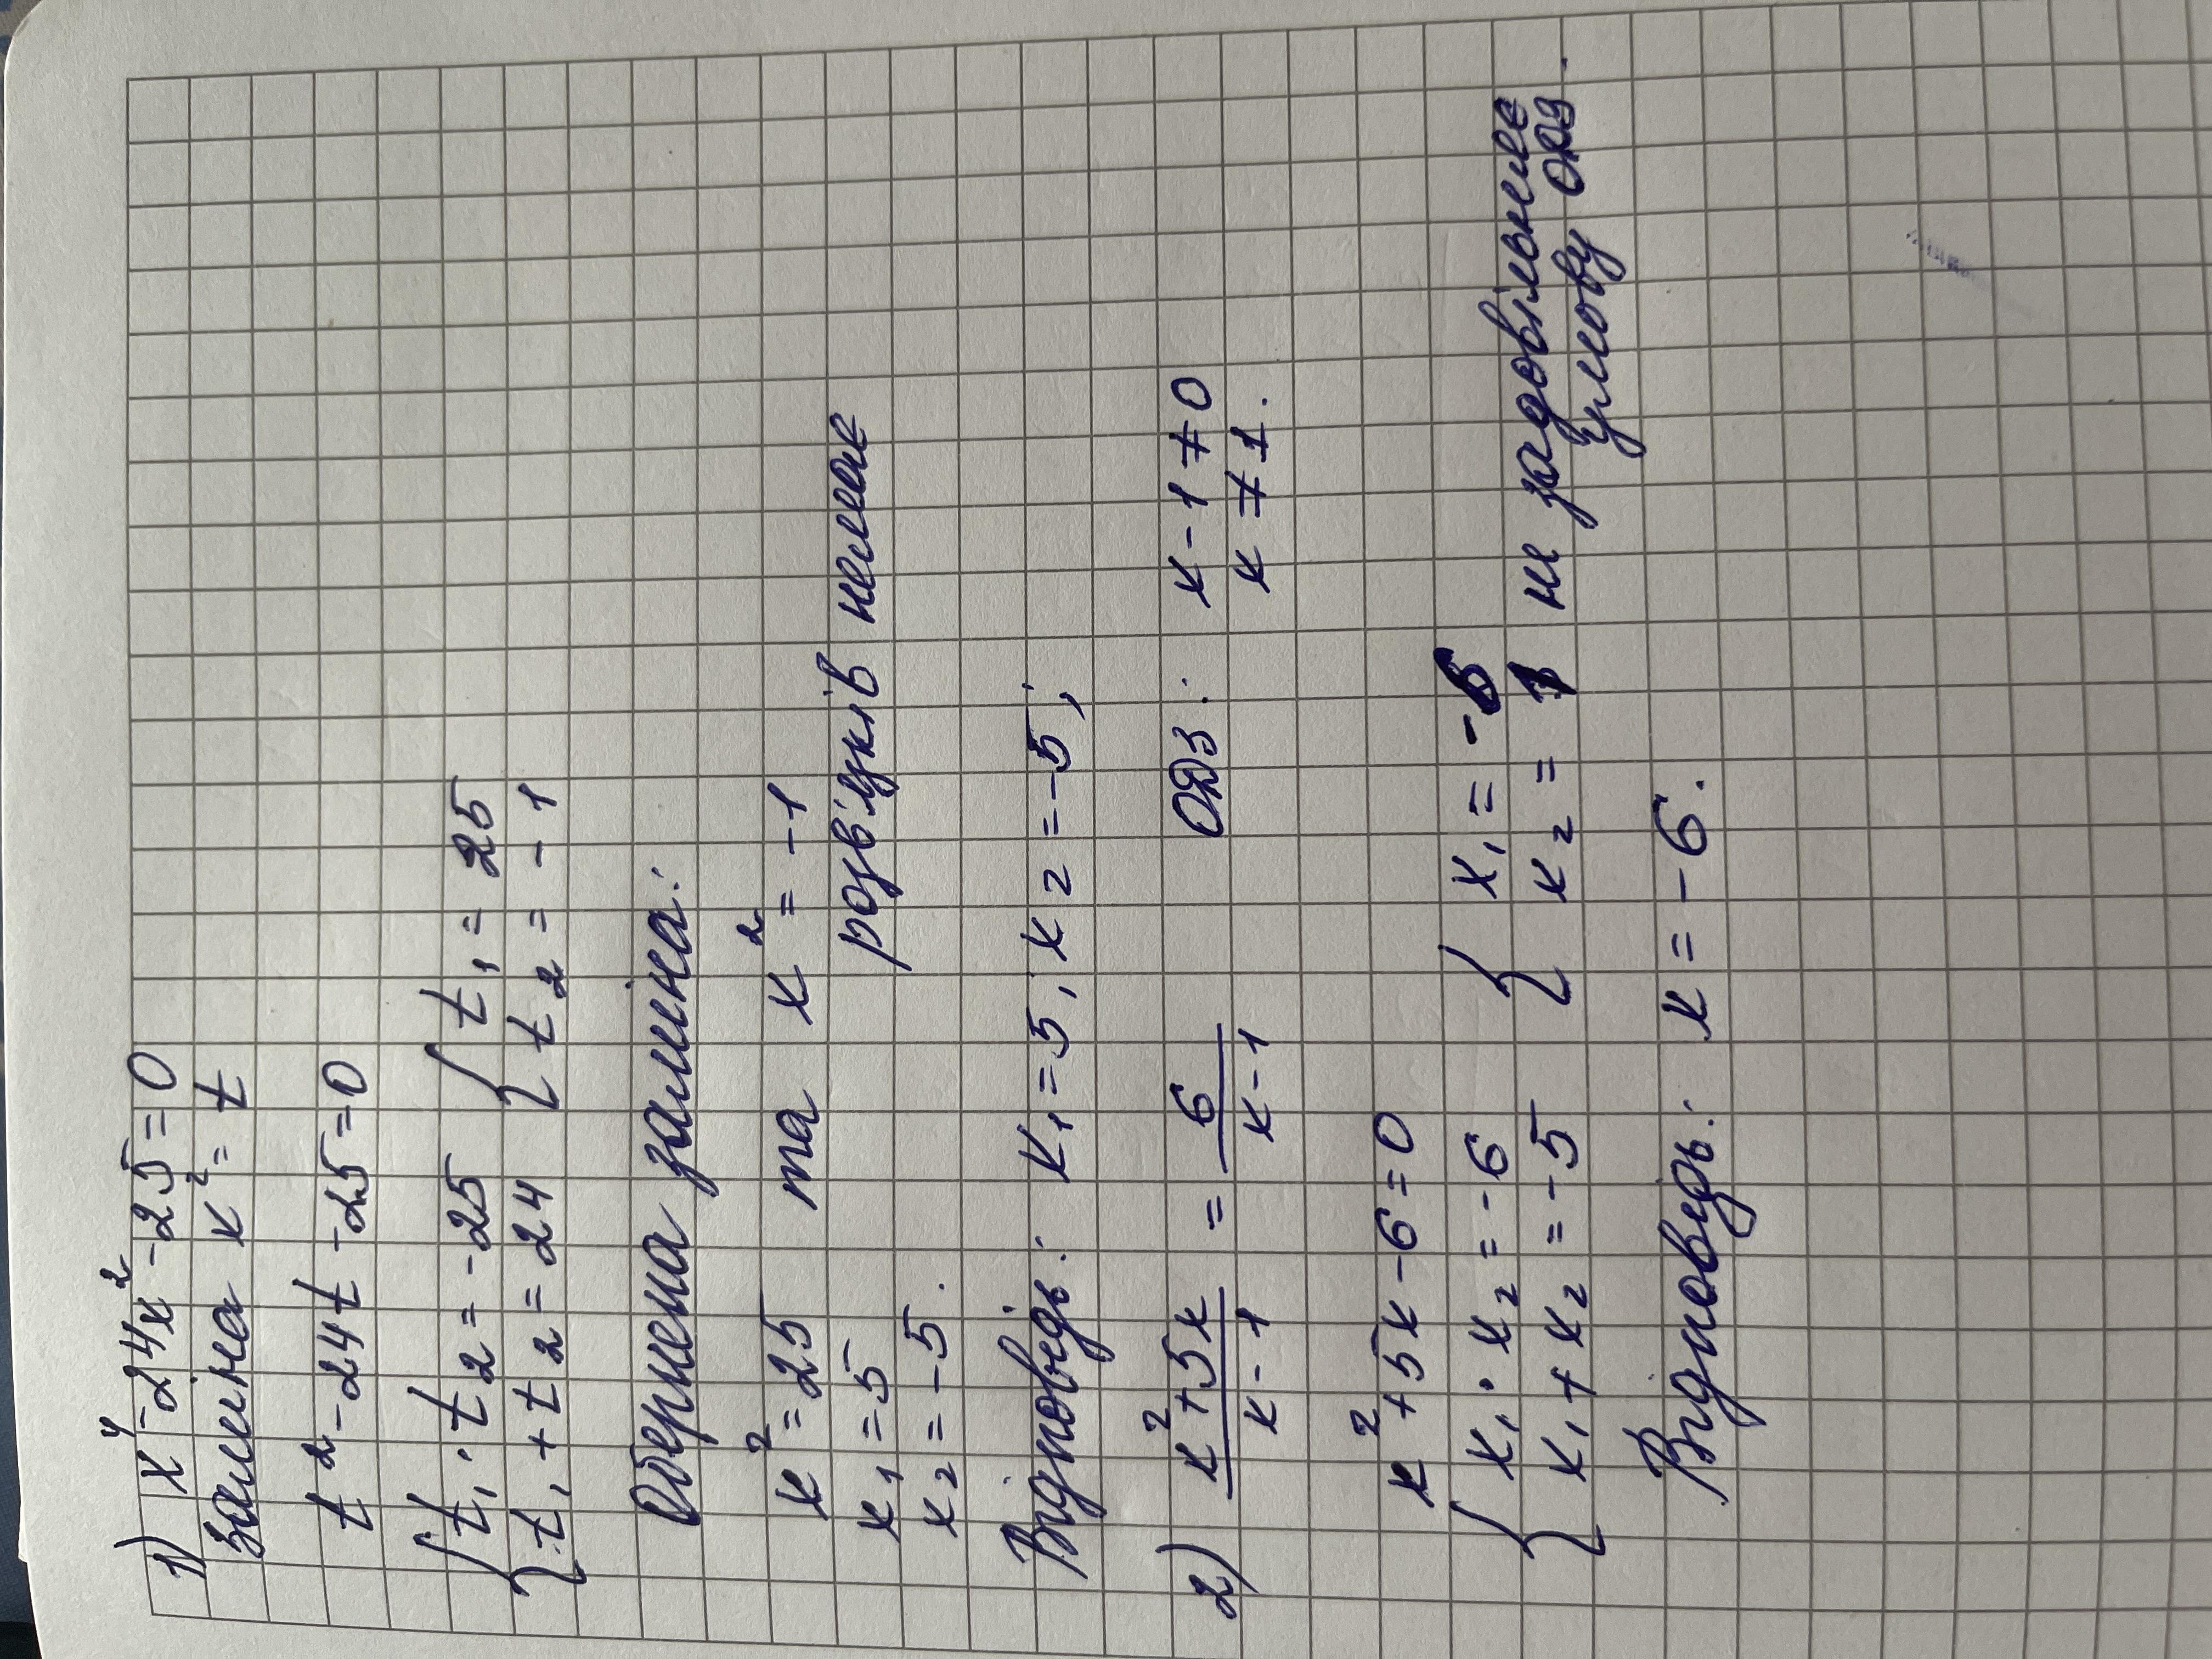 1) x⁴-24x²-25=0
Заміна x²=t
t²-24t-25=0
{ t₁·t₂=-25 { t₁=25
{ t₁+t₂=24 { t₂=-1
Обернена заміна:
x²=25 та x²=-1
x₁=5 розв'язків немає
x₂=-5.
Відповідь: x₁=5; x₂=-5;
2) (x²+5x)/(x-1) = 6/(x-1) ОДЗ: x-1≠0
x≠1.
x²+5x-6=0
{ x₁·x₂=-6 { x₁=-6
{ x₁+x₂=-5 { x₂=1 не задовільнює
умову ОДЗ.
Відповідь: x=-6.